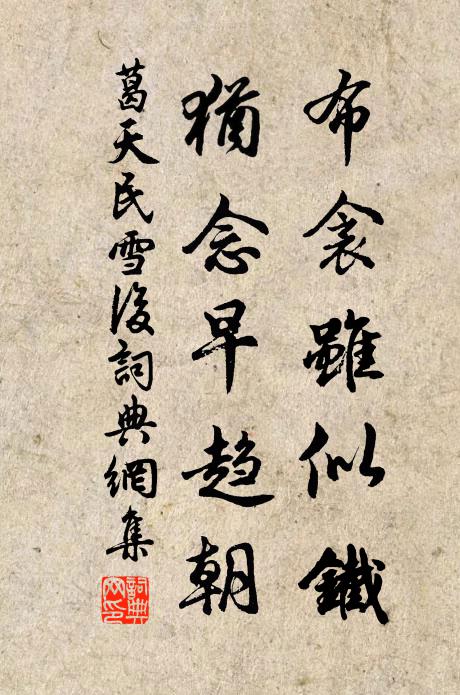 布衾雖似鐵
猶念早趨朝
葛天民雪後詞典網集
詞典
网印